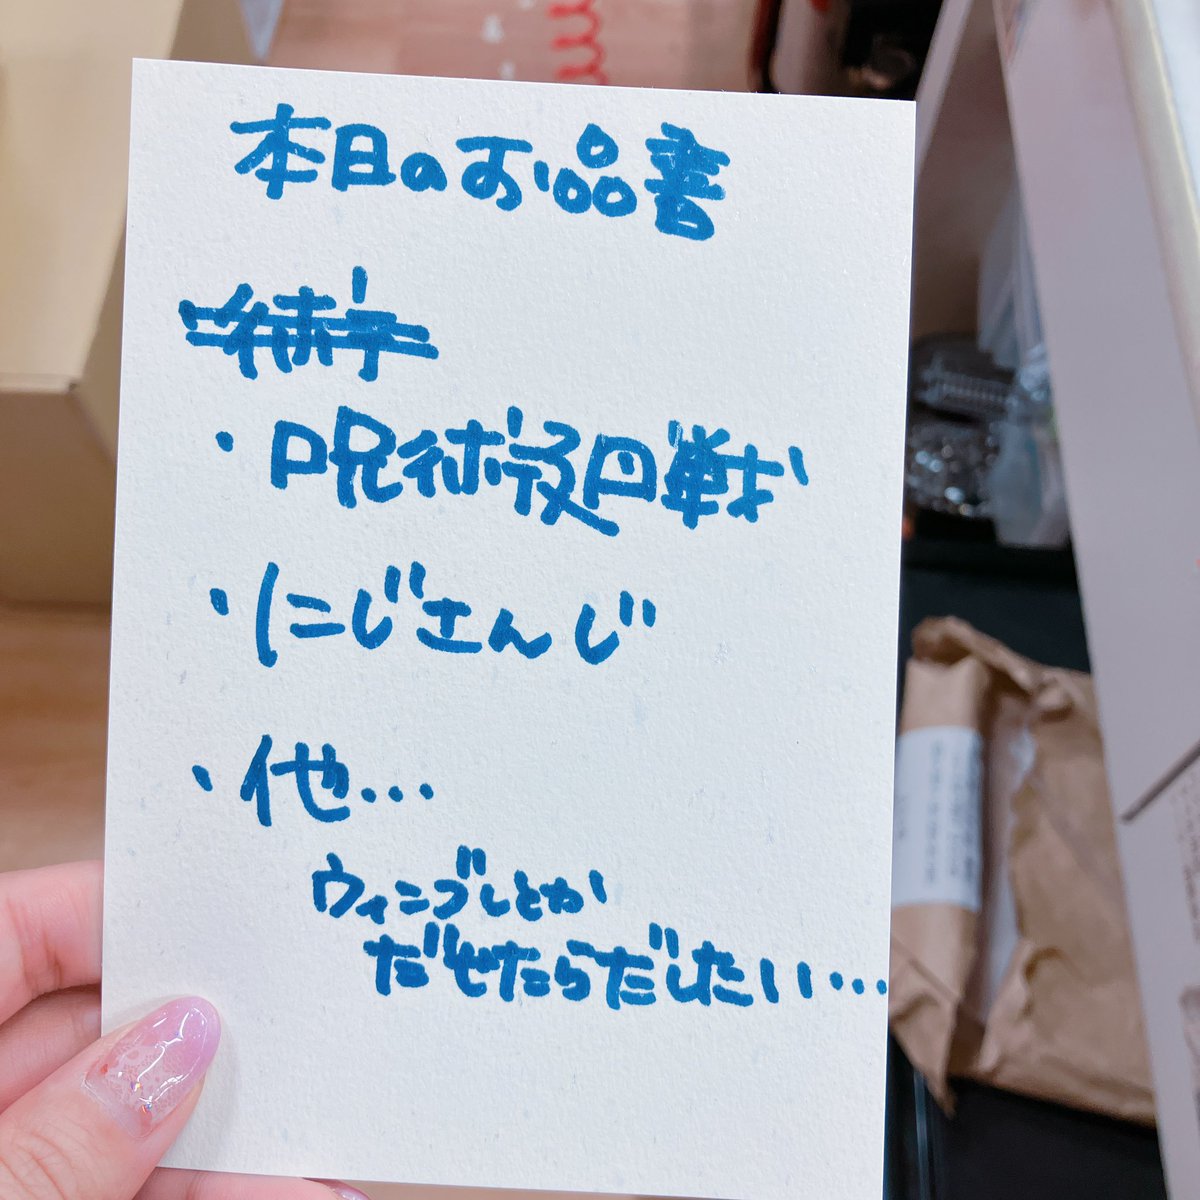 本日のお品書
・呪術廻戦
・にじさんじ
・他…
ウィンブレとか
だせたらだしたい…